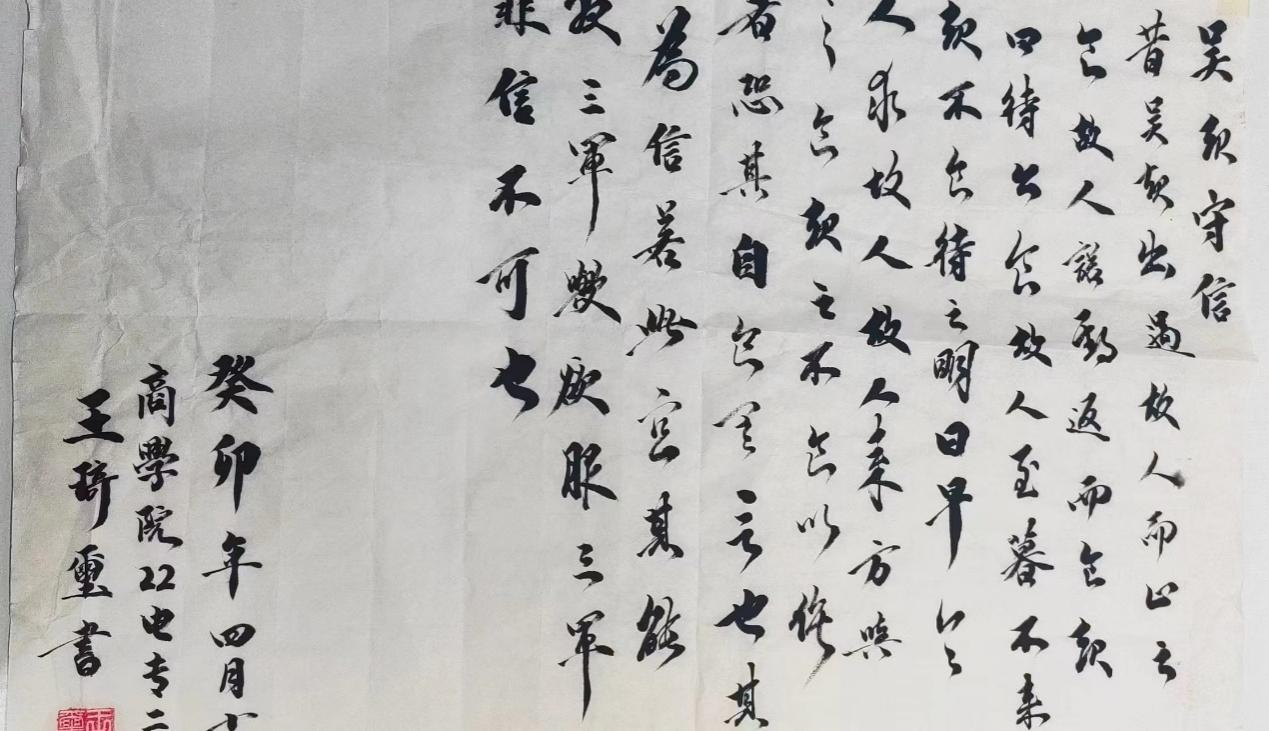 吴起守信
昔吴起出遇故人而止之
食故人諾期返而食起
曰待公食故人至暮不来
起不食待之明日早令
人求故人故人来方與
之食起之不食以俟
者恐其自食其言也其
為信若此宜其能
服三軍歟欲服三軍
非信不可也
癸卯年四月十
商學院22电专二
王琦璽書